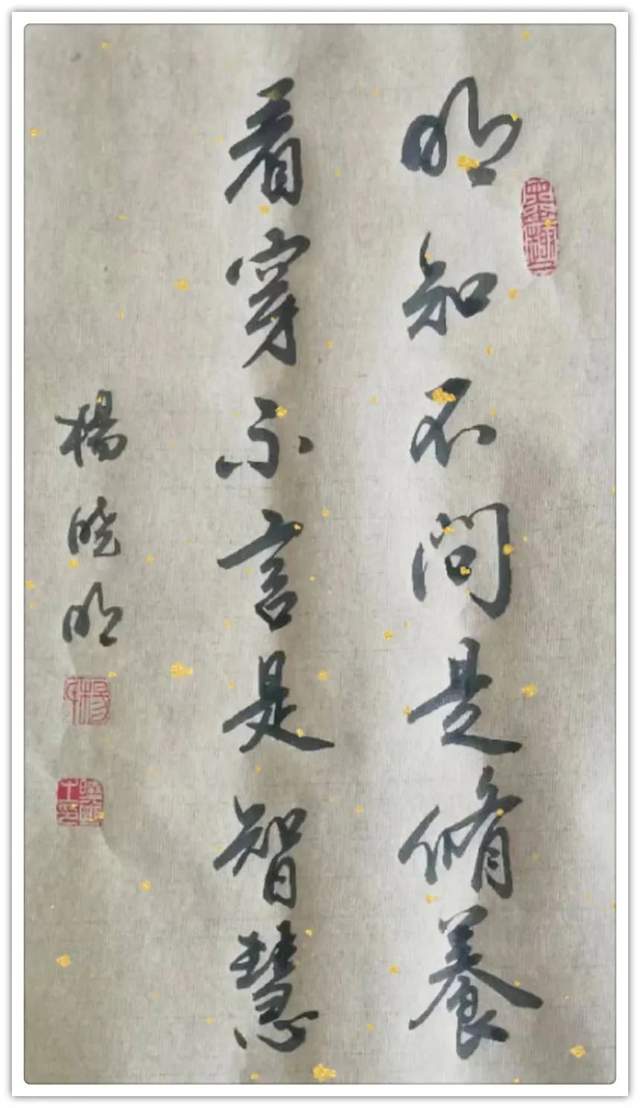 明知不问是脩養
看穿不言是智慧
楊晓明